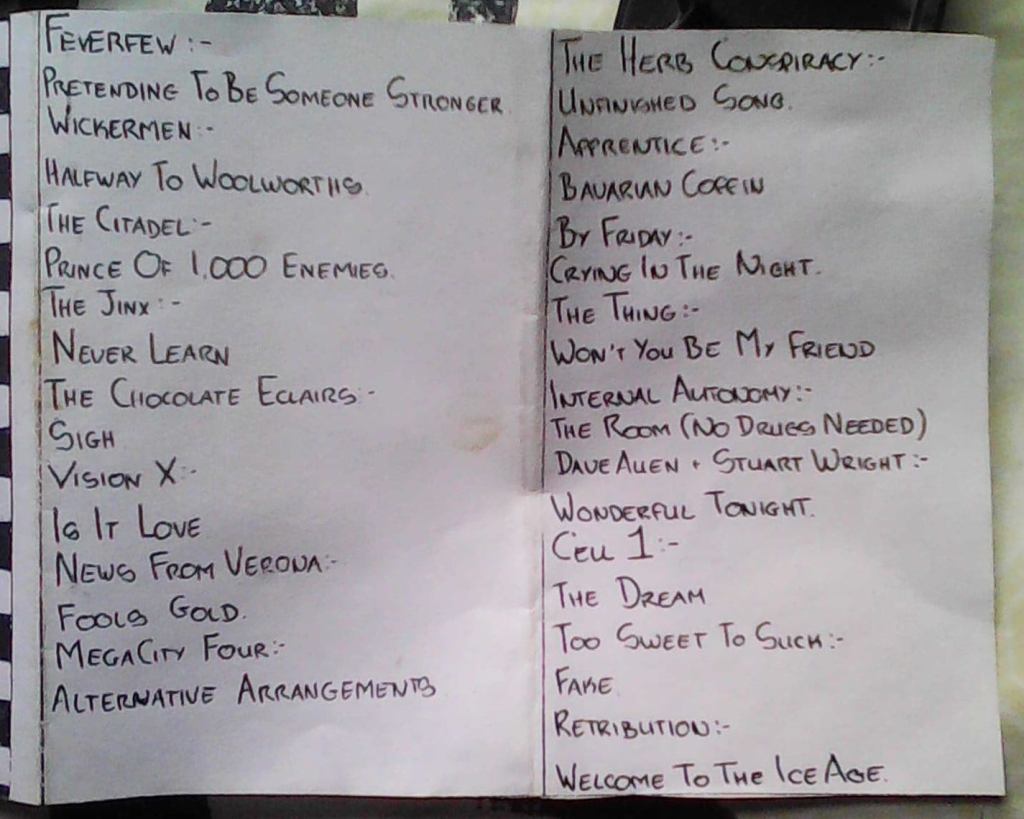 FEVERFEW :-
PRETENDING TO BE SOMEONE STRONGER.
WICKERMEN :-
HALFWAY TO WOOLWORTHS.
THE CITADEL :-
PRINCE OF 1,000 ENEMIES.
THE JINX :-
NEVER LEARN
THE CHOCOLATE ECLAIRS :-
SIGH
VISION X :-
IS IT LOVE
NEWS FROM VERONA :-
FOOLS GOLD.
MEGACITY FOUR :-
ALTERNATIVE ARRANGEMENTS
THE HERB CONSPIRACY :-
UNFINISHED SONG.
APPRENTICE :-
BAVARIAN COFFIN
BY FRIDAY :-
CRYING IN THE NIGHT.
THE THING :-
WON'T YOU BE MY FRIEND
INTERNAL AUTONOMY :-
THE ROOM (NO DRUGS NEEDED)
DAVE ALLEN + STUART WRIGHT :-
WONDERFUL TONIGHT.
CELL 1 :-
THE DREAM
TOO SWEET TO SUCK :-
FAKE.
RETRIBUTION :-
WELCOME TO THE ICE AGE.